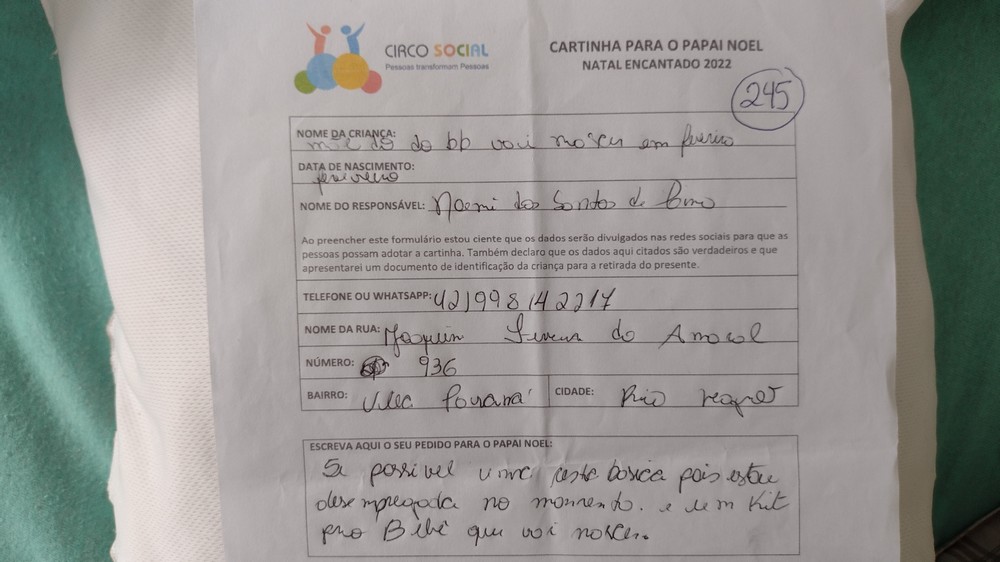 CIRCO SOCIAL
Pessoas transformam Pessoas
CARTINHA PARA O PAPAI NOEL
NATAL ENCANTADO 2022
245
NOME DA CRIANÇA: do bb vai nascer em
DATA DE NASCIMENTO:
fevereiro
NOME DO RESPONSÁVEL: Noemi dos Santos de
Ao preencher este formulário estou ciente que os dados serão divulgados nas redes sociais para que as
pessoas possam adotar a cartinha. Também declaro que os dados aqui citados são verdadeiros e que
apresentarei um documento de identificação da criança para a retirada do presente.
TELEFONE OU WHATSAPP: 42)998142217
NOME DA RUA: do Amaral
NÚMERO: 936
BAIRRO: Vila Paraná CIDADE: Rio
ESCREVA AQUI O SEU PEDIDO PARA O PAPAI NOEL:
Se possivel uma cesta basica pois estou
desempregada no momento. e um Kit
pro Bebê que vai nascer.